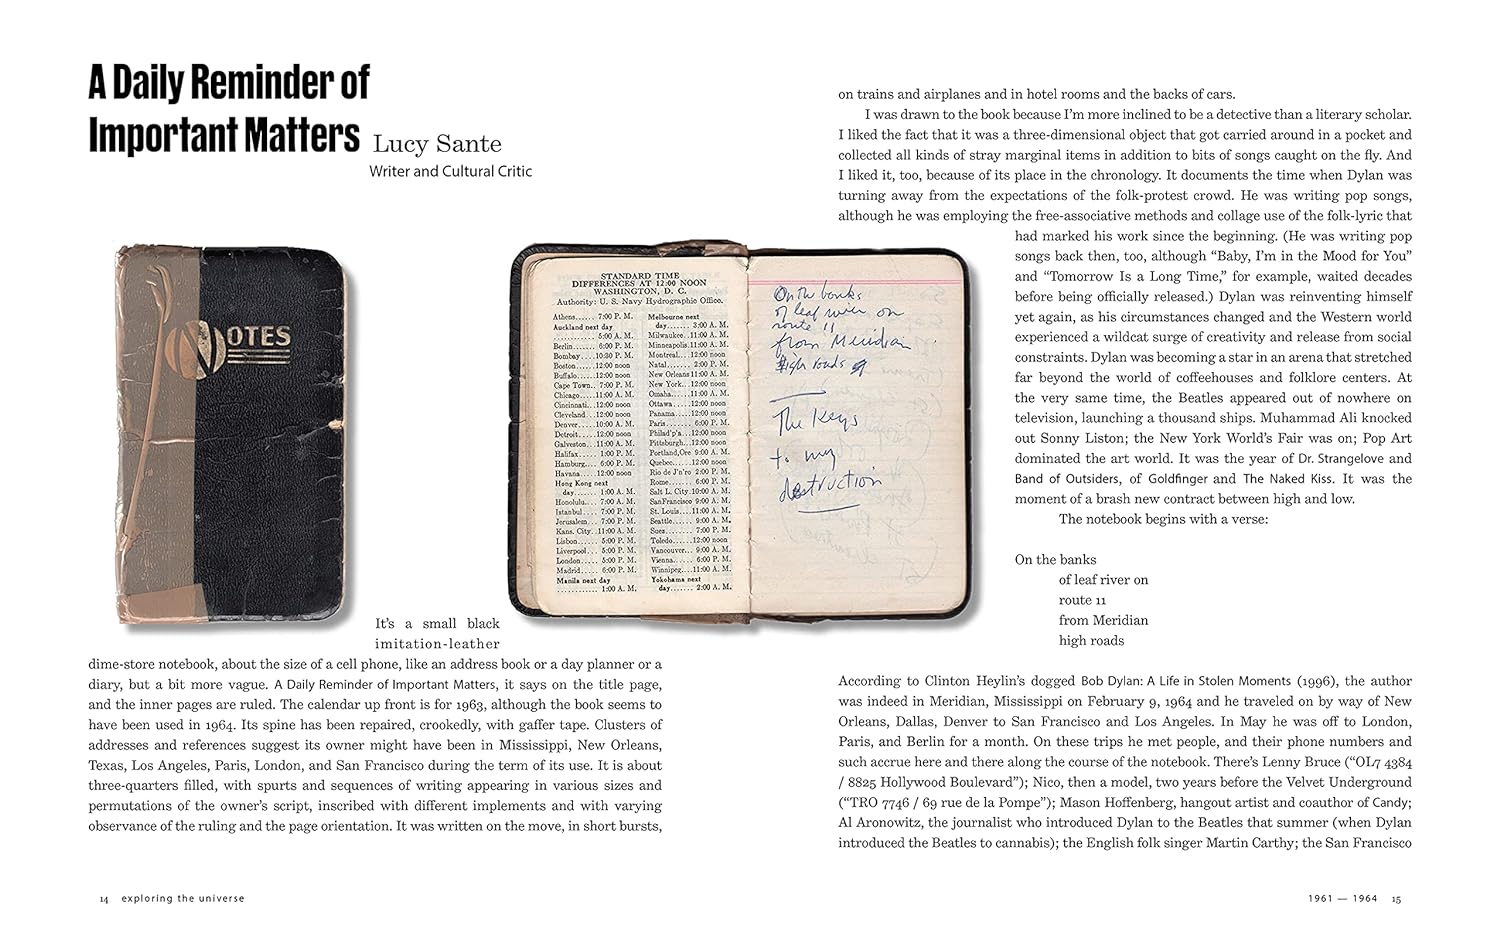 A Daily Reminder of
Important Matters
Lucy Sante
Writer and Cultural Critic
NOTES
It’s a small black
imitation-leather
dime-store notebook, about the size of a cell phone, like an address book or a day planner or a
diary, but a bit more vague. A Daily Reminder of Important Matters, it says on the title page,
and the inner pages are ruled. The calendar up front is for 1963, although the book seems to
have been used in 1964. Its spine has been repaired, crookedly, with gaffer tape. Clusters of
addresses and references suggest its owner might have been in Mississippi, New Orleans,
Texas, Los Angeles, Paris, London, and San Francisco during the term of its use. It is about
three-quarters filled, with spurts and sequences of writing appearing in various sizes and
permutations of the owner’s script, inscribed with different implements and with varying
observance of the ruling and the page orientation. It was written on the move, in short bursts,
14 exploring the universe
STANDARD TIME
DIFFERENCES AT 12:00 NOON
WASHINGTON, D. C.
Authority: U. S. Navy Hydrographic Office.
Athens...... 7:00 P. M.
Auckland next day
............ 5:00 A. M.
Berlin....... 6:00 P. M.
Bombay....10:30 P. M.
Boston......12:00 noon
Buffalo......12:00 noon
Cape Town.. 7:00 P. M.
Chicago.....11:00 A. M.
Cincinnati...12:00 noon
Cleveland...12:00 noon
Denver......10:00 A. M.
Detroit......12:00 noon
Galveston...11:00 A. M.
Halifax...... 1:00 P. M.
Hamburg.... 6:00 P. M.
Havana......12:00 noon
Hong Kong next
day....... 1:00 A. M.
Honolulu.... 7:00 A. M.
Istanbul..... 7:00 P. M.
Jerusalem... 7:00 P. M.
Kans. City..11:00 A. M.
Lisbon...... 5:00 P. M.
Liverpool... 5:00 P. M.
London..... 5:00 P. M.
Madrid..... 6:00 P. M.
Manila next day
............ 1:00 A. M.
Melbourne next
day....... 3:00 A. M.
Milwaukee..11:00 A. M.
Minneapolis.11:00 A. M.
Montreal...12:00 noon
Natal....... 2:00 P. M.
New Orleans 11:00 A. M.
New York..12:00 noon
Omaha......11:00 A. M.
Ottawa.....12:00 noon
Panama.....12:00 noon
Paris........ 6:00 P. M.
Philad'p'a...12:00 noon
Pittsburgh..12:00 noon
Portland,Ore 9:00 A. M.
Quebec......12:00 noon
Rio de J'n'ro 2:00 P. M.
Rome....... 6:00 P. M.
Salt L. City 10:00 A. M.
SanFrancisco 9:00 A. M.
St. Louis....11:00 A. M.
Seattle...... 9:00 A. M.
Suez........ 7:00 P. M.
Toledo......12:00 noon
Vancouver... 9:00 A. M.
Vienna...... 6:00 P. M.
Winnipeg...11:00 A. M.
Yokohama next
day....... 2:00 A. M.
On the banks
of leaf river on
route 11
from Meridian
high roads of
The Keys
to my
destruction
on trains and airplanes and in hotel rooms and the backs of cars.
I was drawn to the book because I’m more inclined to be a detective than a literary scholar.
I liked the fact that it was a three-dimensional object that got carried around in a pocket and
collected all kinds of stray marginal items in addition to bits of songs caught on the fly. And
I liked it, too, because of its place in the chronology. It documents the time when Dylan was
turning away from the expectations of the folk-protest crowd. He was writing pop songs,
although he was employing the free-associative methods and collage use of the folk-lyric that
had marked his work since the beginning. (He was writing pop
songs back then, too, although “Baby, I’m in the Mood for You”
and “Tomorrow Is a Long Time,” for example, waited decades
before being officially released.) Dylan was reinventing himself
yet again, as his circumstances changed and the Western world
experienced a wildcat surge of creativity and release from social
constraints. Dylan was becoming a star in an arena that stretched
far beyond the world of coffeehouses and folklore centers. At
the very same time, the Beatles appeared out of nowhere on
television, launching a thousand ships. Muhammad Ali knocked
out Sonny Liston; the New York World’s Fair was on; Pop Art
dominated the art world. It was the year of Dr. Strangelove and
Band of Outsiders, of Goldfinger and The Naked Kiss. It was the
moment of a brash new contract between high and low.
The notebook begins with a verse:
On the banks
of leaf river on
route 11
from Meridian
high roads
According to Clinton Heylin’s dogged Bob Dylan: A Life in Stolen Moments (1996), the author
was indeed in Meridian, Mississippi on February 9, 1964 and he traveled on by way of New
Orleans, Dallas, Denver to San Francisco and Los Angeles. In May he was off to London,
Paris, and Berlin for a month. On these trips he met people, and their phone numbers and
such accrue here and there along the course of the notebook. There’s Lenny Bruce (“OL7 4384
/ 8825 Hollywood Boulevard”); Nico, then a model, two years before the Velvet Underground
(“TRO 7746 / 69 rue de la Pompe”); Mason Hoffenberg, hangout artist and coauthor of Candy;
Al Aronowitz, the journalist who introduced Dylan to the Beatles that summer (when Dylan
introduced the Beatles to cannabis); the English folk singer Martin Carthy; the San Francisco
1961 — 1964 15